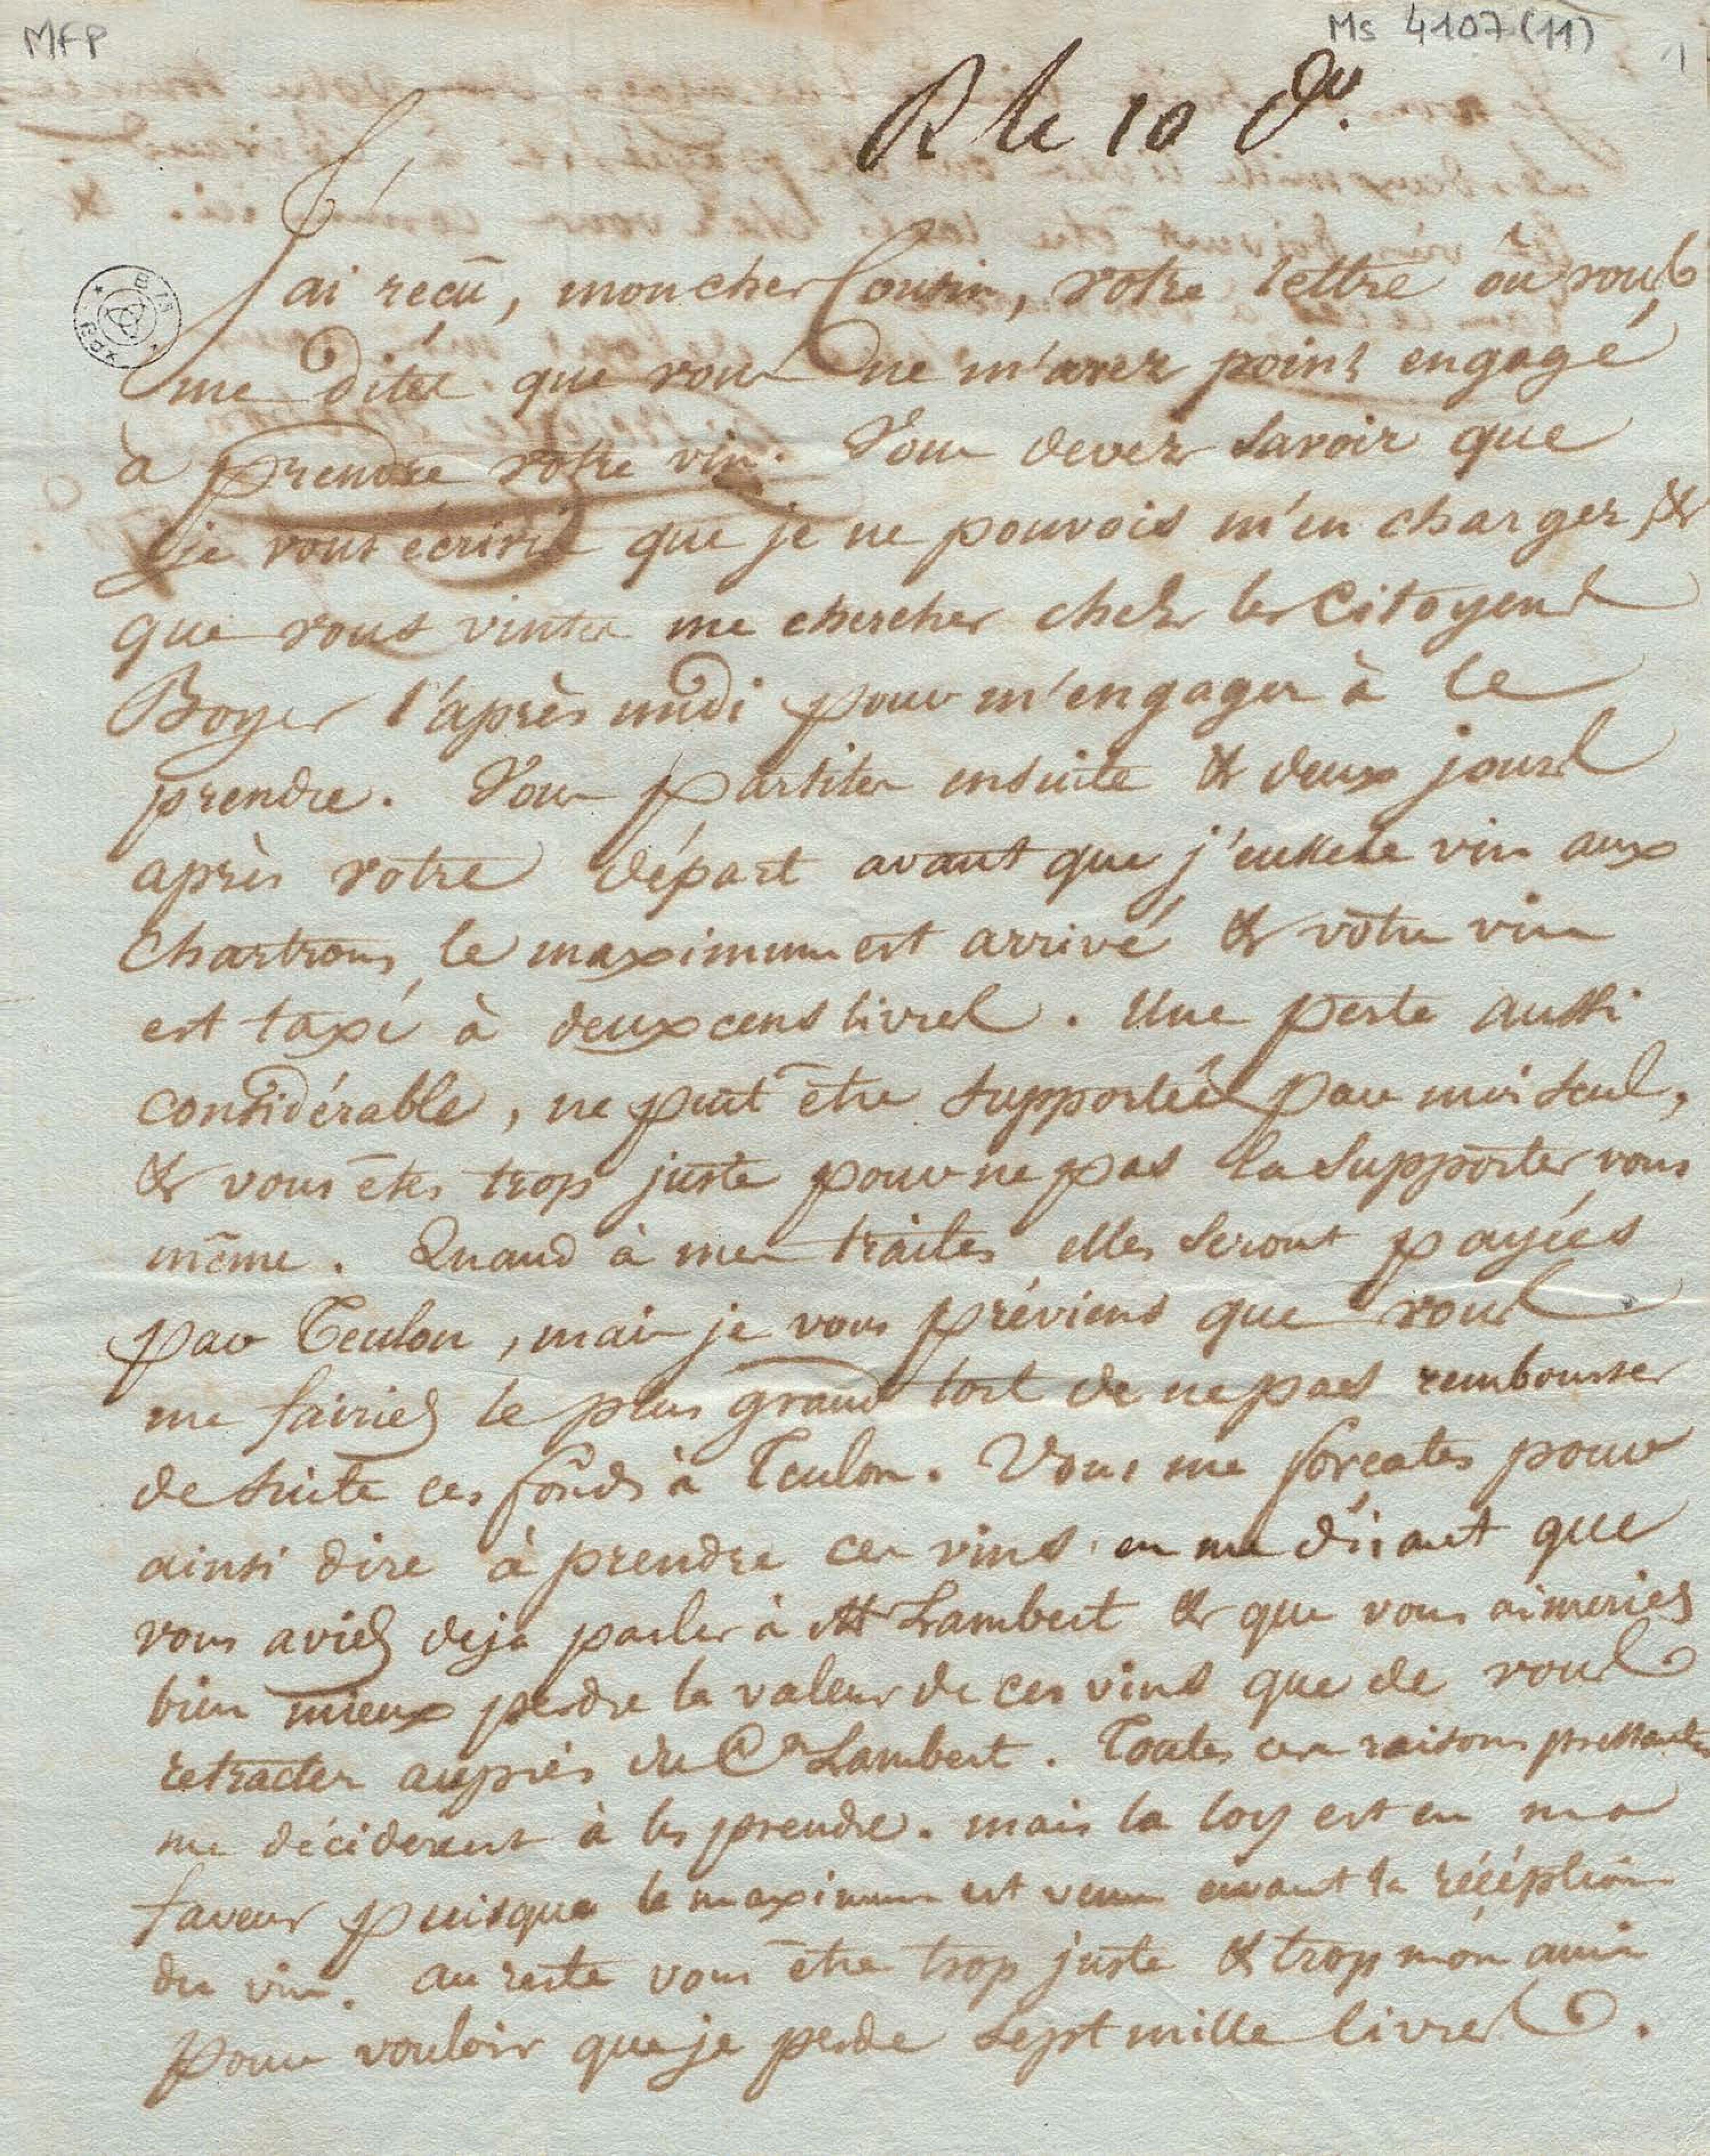 MFP
Ms 4107 (11)
1
R le 10 d.
J'ai recu, mon cher Cousin, votre lettre ou vous
me dites que vous ne m'avez point engagé
à prendre votre vin. Vous devez savoir que
je vous écrivis que je ne pouvois m'en charger, &
que vous vintes me chercher chez les Citoyens
Boyer l'après midi pour m'engager à le
prendre. Vous partites ensuite & deux jours
après votre départ avant que j'eusse le vin aux
chartrons, le maximum est arrivé & votre vin
est taxé à deux cens livres. Une perte aussi
considérable, ne peut être supportée par moi seul,
& vous êtes trop juste pour ne pas la supporter vous
même. Quand à mes traites elles seront payées
par Teulon, mais je vous préviens que vous
me fairiés le plus grand tort de ne pas rembourser
de suite ces fonds à Teulon. Vous me forcates pour
ainsi dire à prendre ces vins en me disant que
vous aviés deja parler à M Lambert & que vous aimeriés
bien mieux perdre la valeur de ces vins que de vous
retracter auprès du Cen Lambert. Toutes ces raisons pressantes
me déciderent à les prendre. mais la loy est en ma
faveur puisque le maximum est venu avant la récéption
du vin. au reste vous être trop juste & trop mon ami
pour vouloir que je perde sept mille livres.